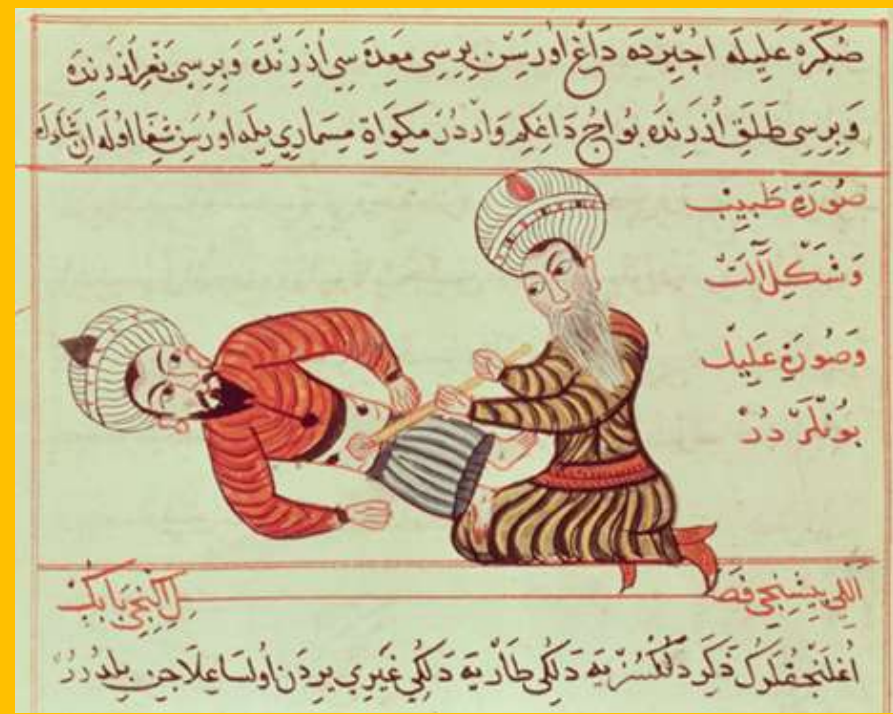 صكره عليله اجيرده داغ اورسن بريسى معده سى اذرنده وبريسى بغر اذرنده
وبريسى طلق اذرنده بو اج داغكم واردر مكواة مسمارى يله اورسن شفا اوله ان شاء الله
صورة طبيب
وشكل آلت
وصورة عليل
بونلردر
اللى بيشنجى فصل اكنجى بابك
اغلنجقلرك ذكر دلكسزيه دلكى طاريه دلكى غيرى يردن اولسا علاجين بلدرر